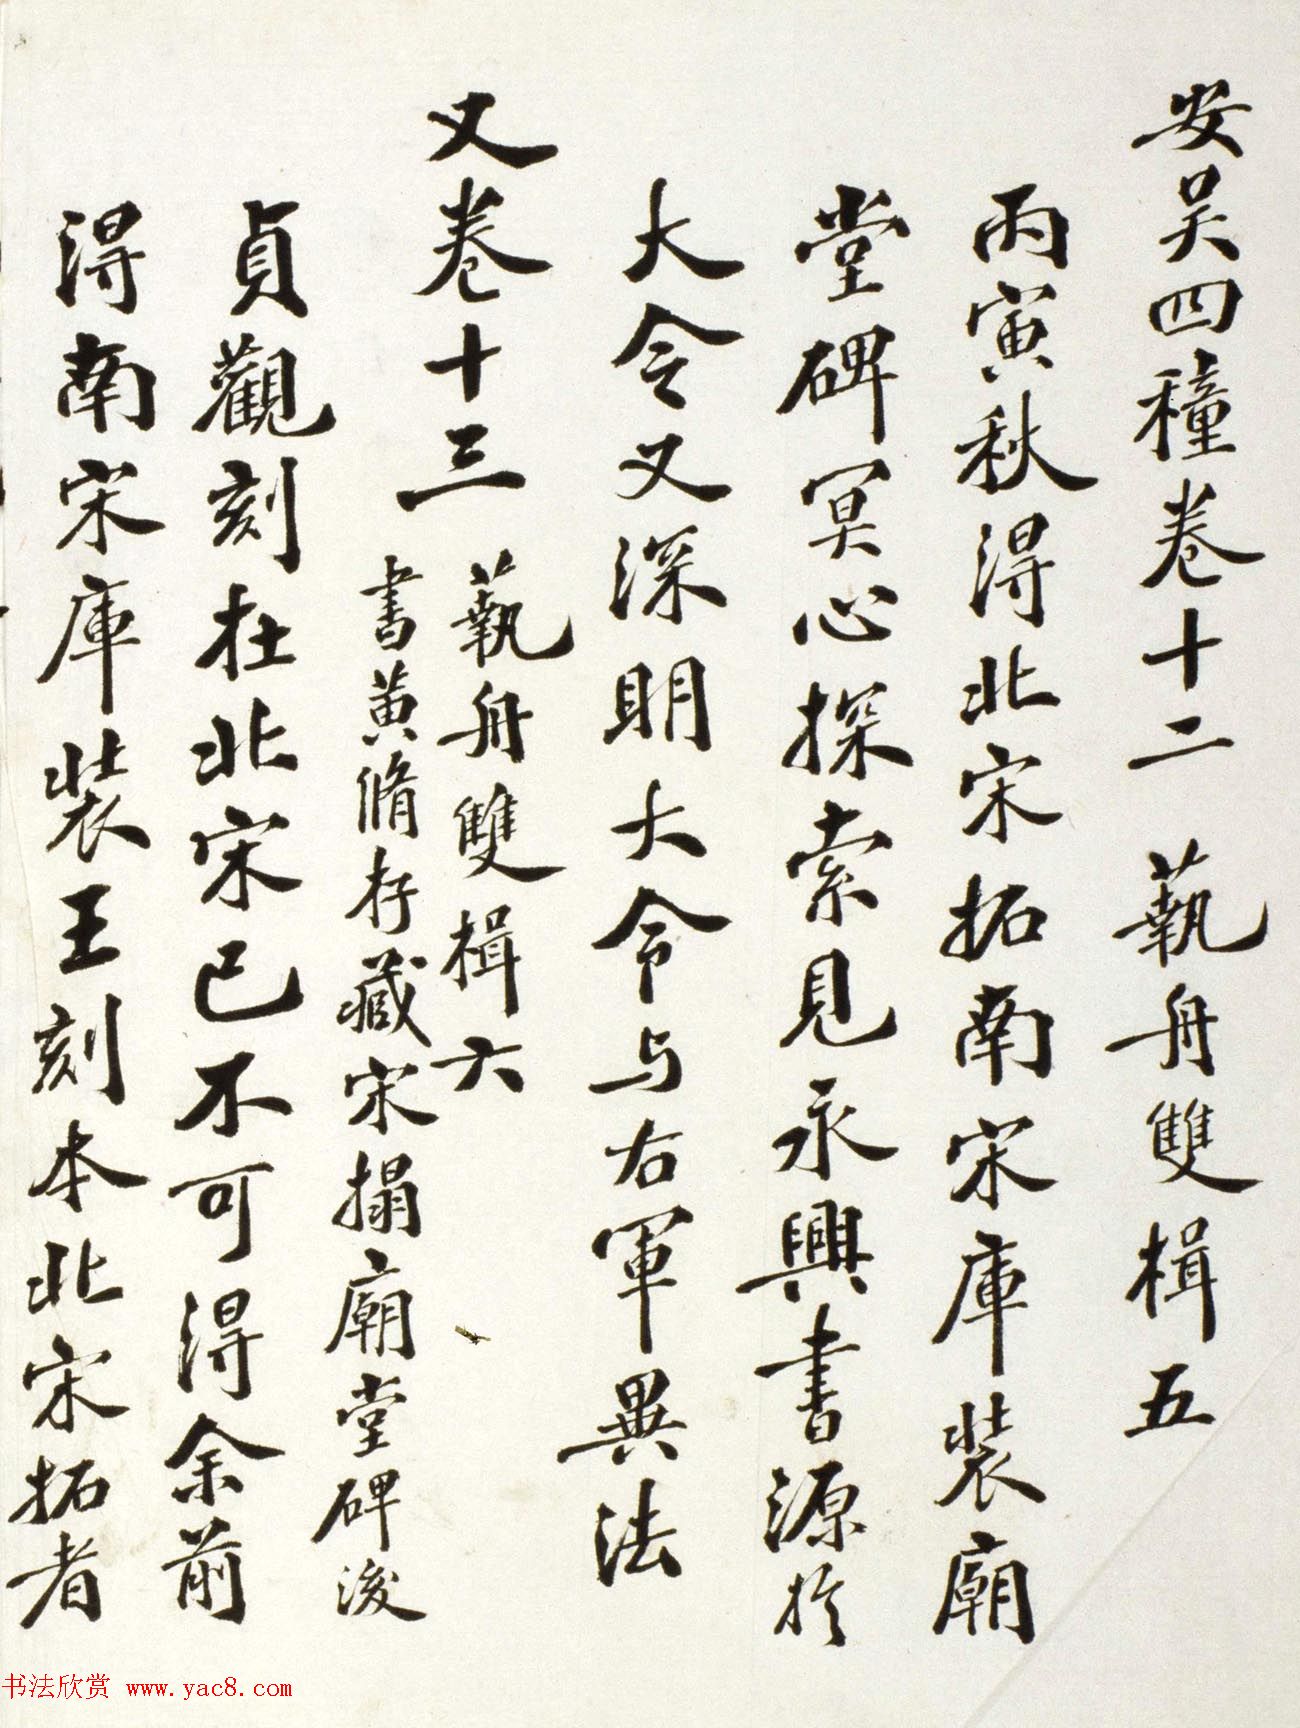 安吴四種卷十二　藝舟雙楫五
丙寅秋得北宋拓南宋庫裝廟
堂碑冥心探索見永興書源於
大令又深明大令与右軍異法
又卷十三　藝舟雙楫六
書黄脩存藏宋搨廟堂碑後
貞觀刻在北宋已不可得余前
得南宋庫裝王刻本北宋拓者
书法欣赏 www.yac8.com